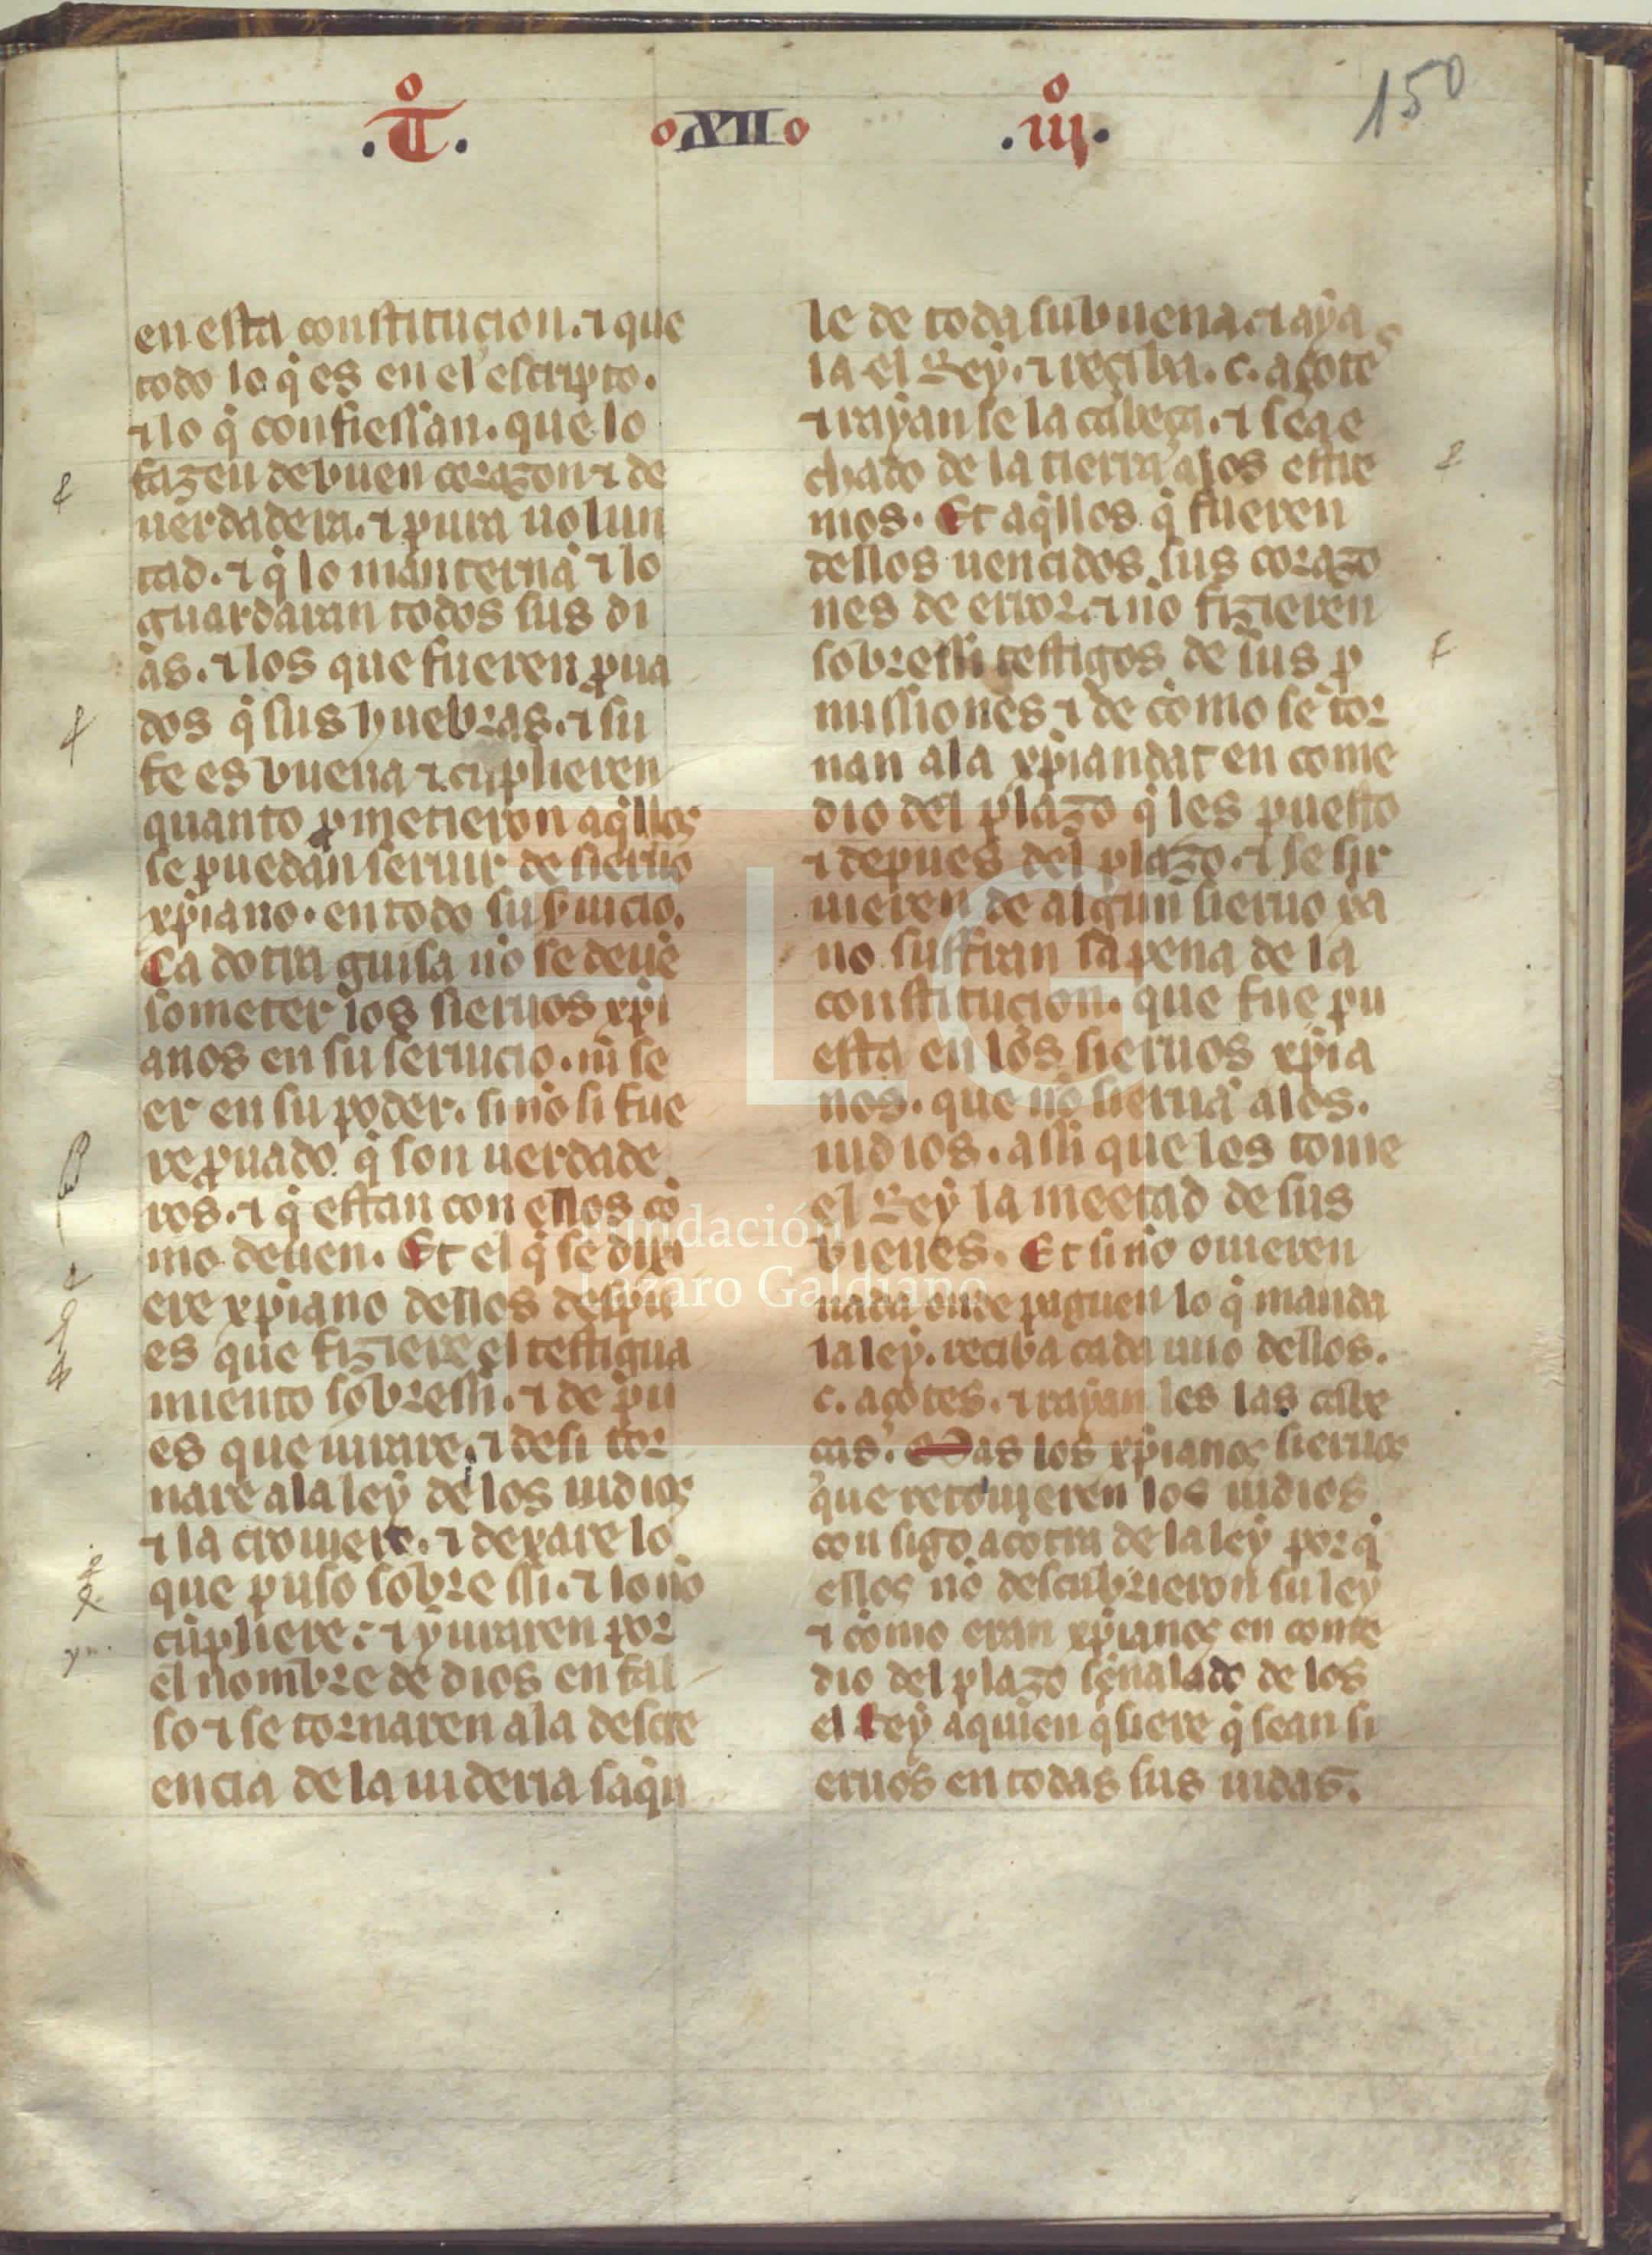 .T̊. XII .iij̊.
150
en esta constitucion. ⁊ que
todo lo q̇ es en el escripto.
⁊ lo q̇ confiessan. que lo
fazen de buen corazon ⁊ de
uerdadera. ⁊ pura uolun
tad. ⁊ q̇ lo manterna ⁊ lo
guardaran todos sus di
as. ⁊ los que fueren ꝓua
dos q̇ sus huebras. ⁊ su
fe es buena ⁊ cũplieren
quanto ꝓmetieron aq̇llos
se puedan seruir de sieruo
xp̃iano. en todo su ꝰuicio.
Ca dotra guisa nõ se deue
someter los sieruos xp̃i
anos en su seruicio. nĩ se
er en su poder. si nõ si fue
re ꝓuado q̇ son uerdade
ros. ⁊ q̇ estan con ellos cõ
mo deuen. Et el q̇ se dixi
ere xp̃iano dellos despu
es que fiziere el testigua
miento sobressi. ⁊ de pu
es que iurare. ⁊ desi tor
nare a la ley de los iudios
⁊ la crouiere. ⁊ dexare lo
que puso sobre ssi. ⁊ lo nõ
cũpliere: ⁊ yuraren por
el nombre de dios en fal
so ⁊ se tornaren a la descre
encia de la iuderia saq̇n
le de toda su buena. ⁊ aya
la el Rey. ⁊ reciba. c. açotes
⁊ rayan se la cabeça. ⁊ sea e
chado de la tierra a los estre
mos. Et aq̇llos q̇ fueren
dellos uencidos sus corazo
nes de error. ⁊ nõ fizieren
sobressi testigos de sus ꝓ
missiones ⁊ de cõmo se tor
nan a la xp̃iandat en come
dio del plazo q̇ les puesto
⁊ depues del plazo. ⁊ se sir
uieren de algun sieruo ya
no suffran la pena de la
constitucion. que fue pu
esta en los sieruos xp̃ia
nos. que nõ sieruã a los.
iudios. assi que les tome
el Rey la meetad de sus
bienes. Et si nõ ouieren
nada onde paguen lo q̇ manda
la ley. reciba cada uno dellos.
c. açotes. ⁊ rayan les las cabe
cas. Mas los xp̃ianos sieruos
que retouieren los iudios
con sigo a cotra de la ley por q̇
ellos nõ descubrieron su ley
⁊ cõmo eran xp̃ianos en come
dio del plazo señalado de los
el Rey a quien q̇siere q̇ sean si
eruos en todas sus uidas.
Fundación
Lázaro Galdiano